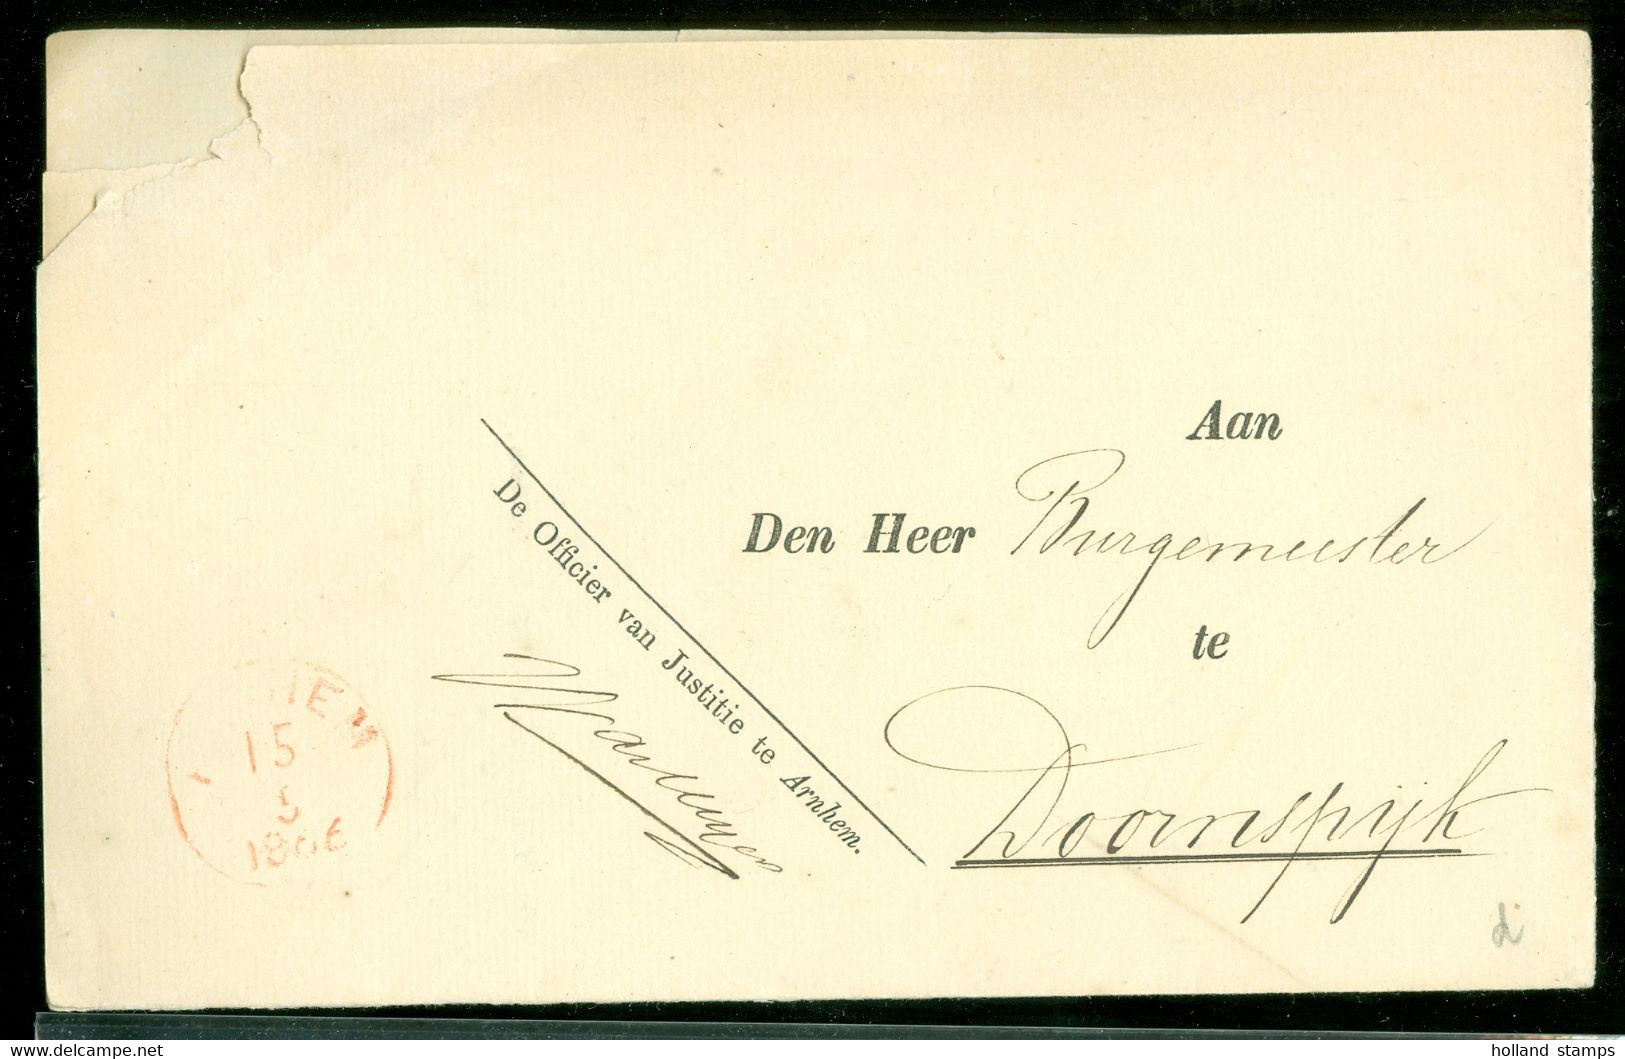 Aan
Den Heer Burgemeester
te
Doornspijk
De Officier van Justitie te Arnhem.
HEM
15
5
1866
delcampe.net
holland stamps